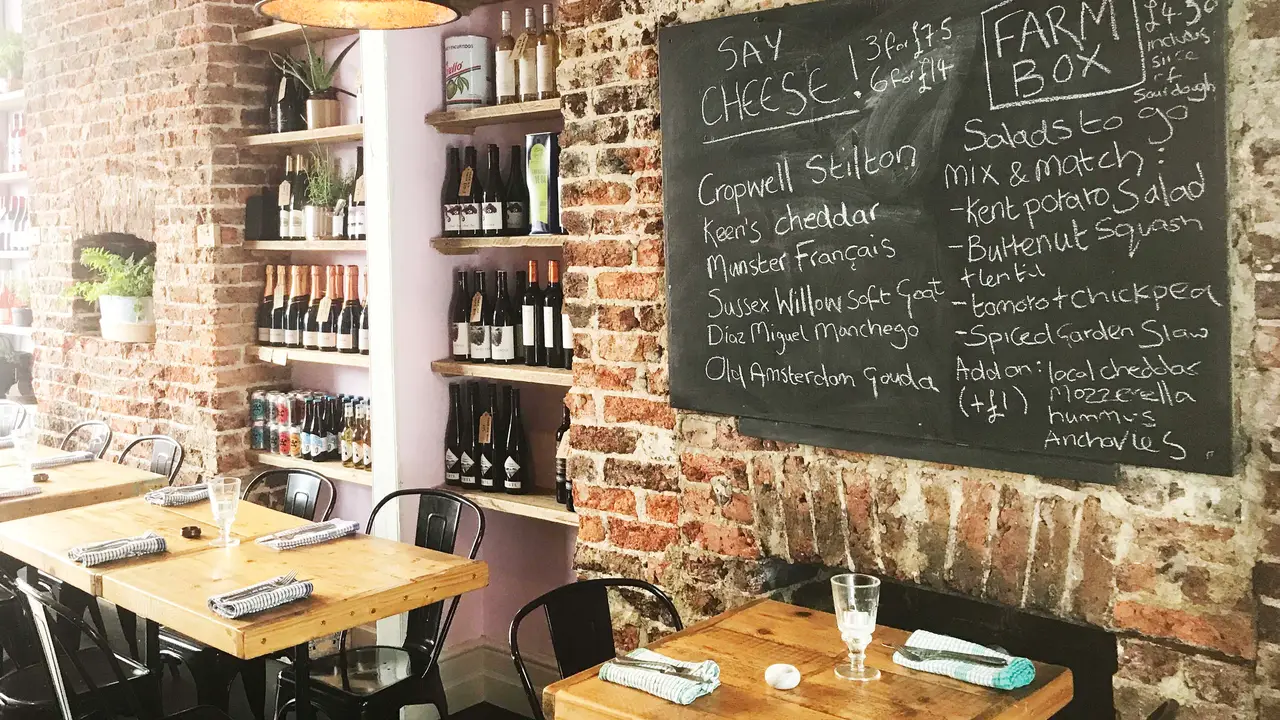 SAY
CHEESE!
3 for £7.5
6 for £14
Cropwell Stilton
Keen's cheddar
Munster Français
Sussex Willow Soft Goat
Diaz Miguel Manchego
Old Amsterdam Gouda
FARM
BOX
includes
slice
of
Sourdough
Salads to go
mix & match:
-Kent potato Salad
-Butternut Squash
+lentil
-tomato+chickpea
-Spiced Garden Slaw
Add on: local cheddar
(+£1) Mozzerella
hummus
Anchovies